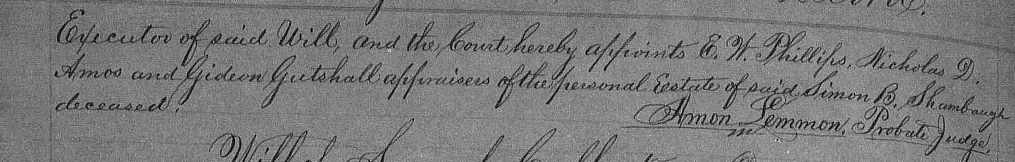 Record.
Executor of said Will, and the Court hereby appoints E. W. Phillips, Nicholas D.
Amos and Gideon Gutshall appraisers of the personal Estate of said Simon B. Shambaugh
deceased.
Amon Lemmon, Probate Judge.
Will